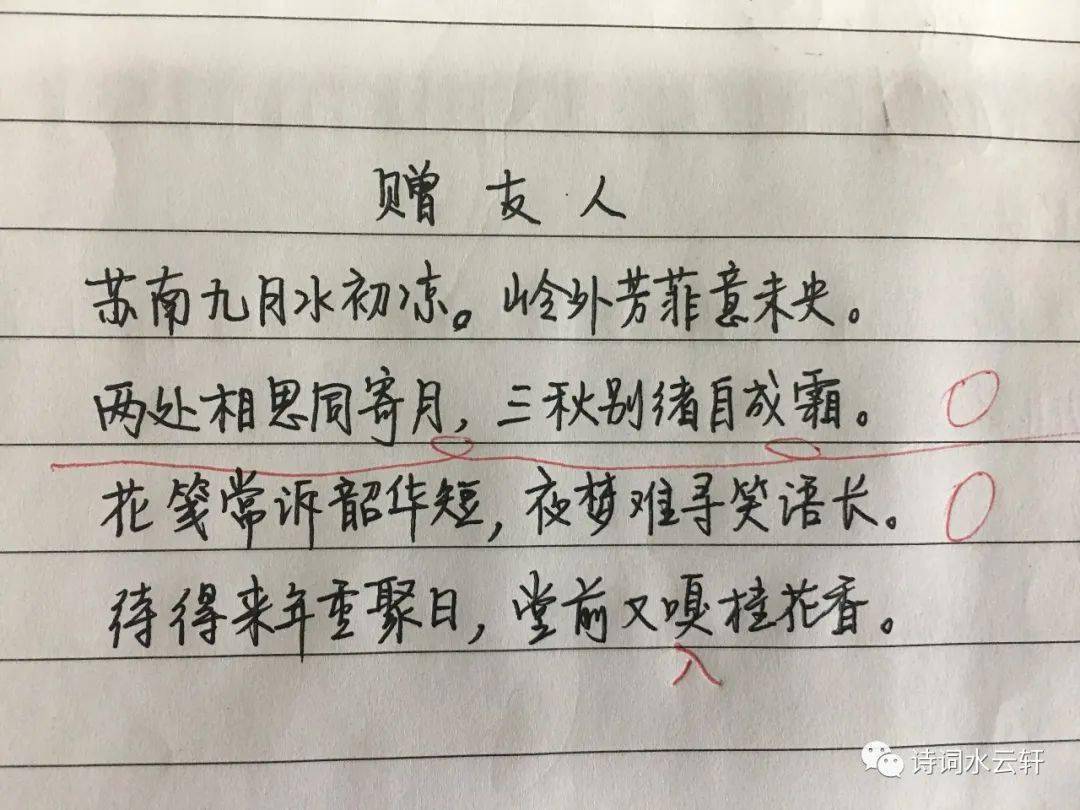 赠友人
苏南九月水初凉。岭外芳菲意未央。
两处相思同寄月，三秋别绪自成霜。
花笺常诉韶华短，夜梦难寻笑语长。
待得来年重聚日，堂前又嗅桂花香。
诗词水云轩